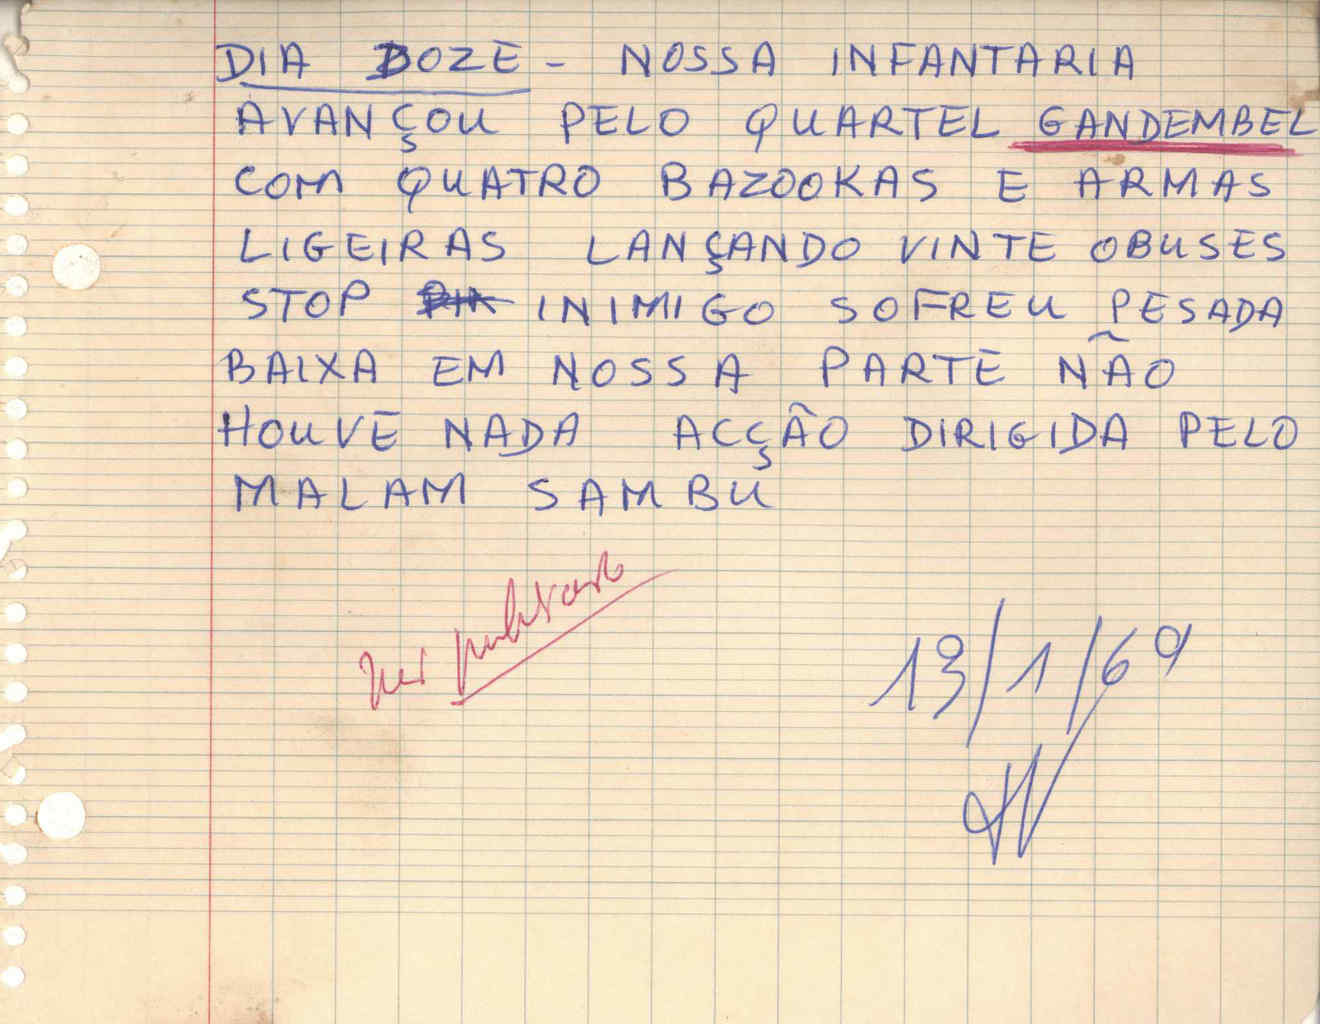 DIA DOZE - NOSSA INFANTARIA
AVANÇOU PELO QUARTEL GANDEMBEL
COM QUATRO BAZOOKAS E ARMAS
LIGEIRAS LANÇANDO VINTE OBUSES
STOP INIMIGO SOFREU PESADA
BAIXA EM NOSSA PARTE NÃO
HOUVE NADA ACÇÃO DIRIGIDA PELO
MALAM SAMBU
13/1/69